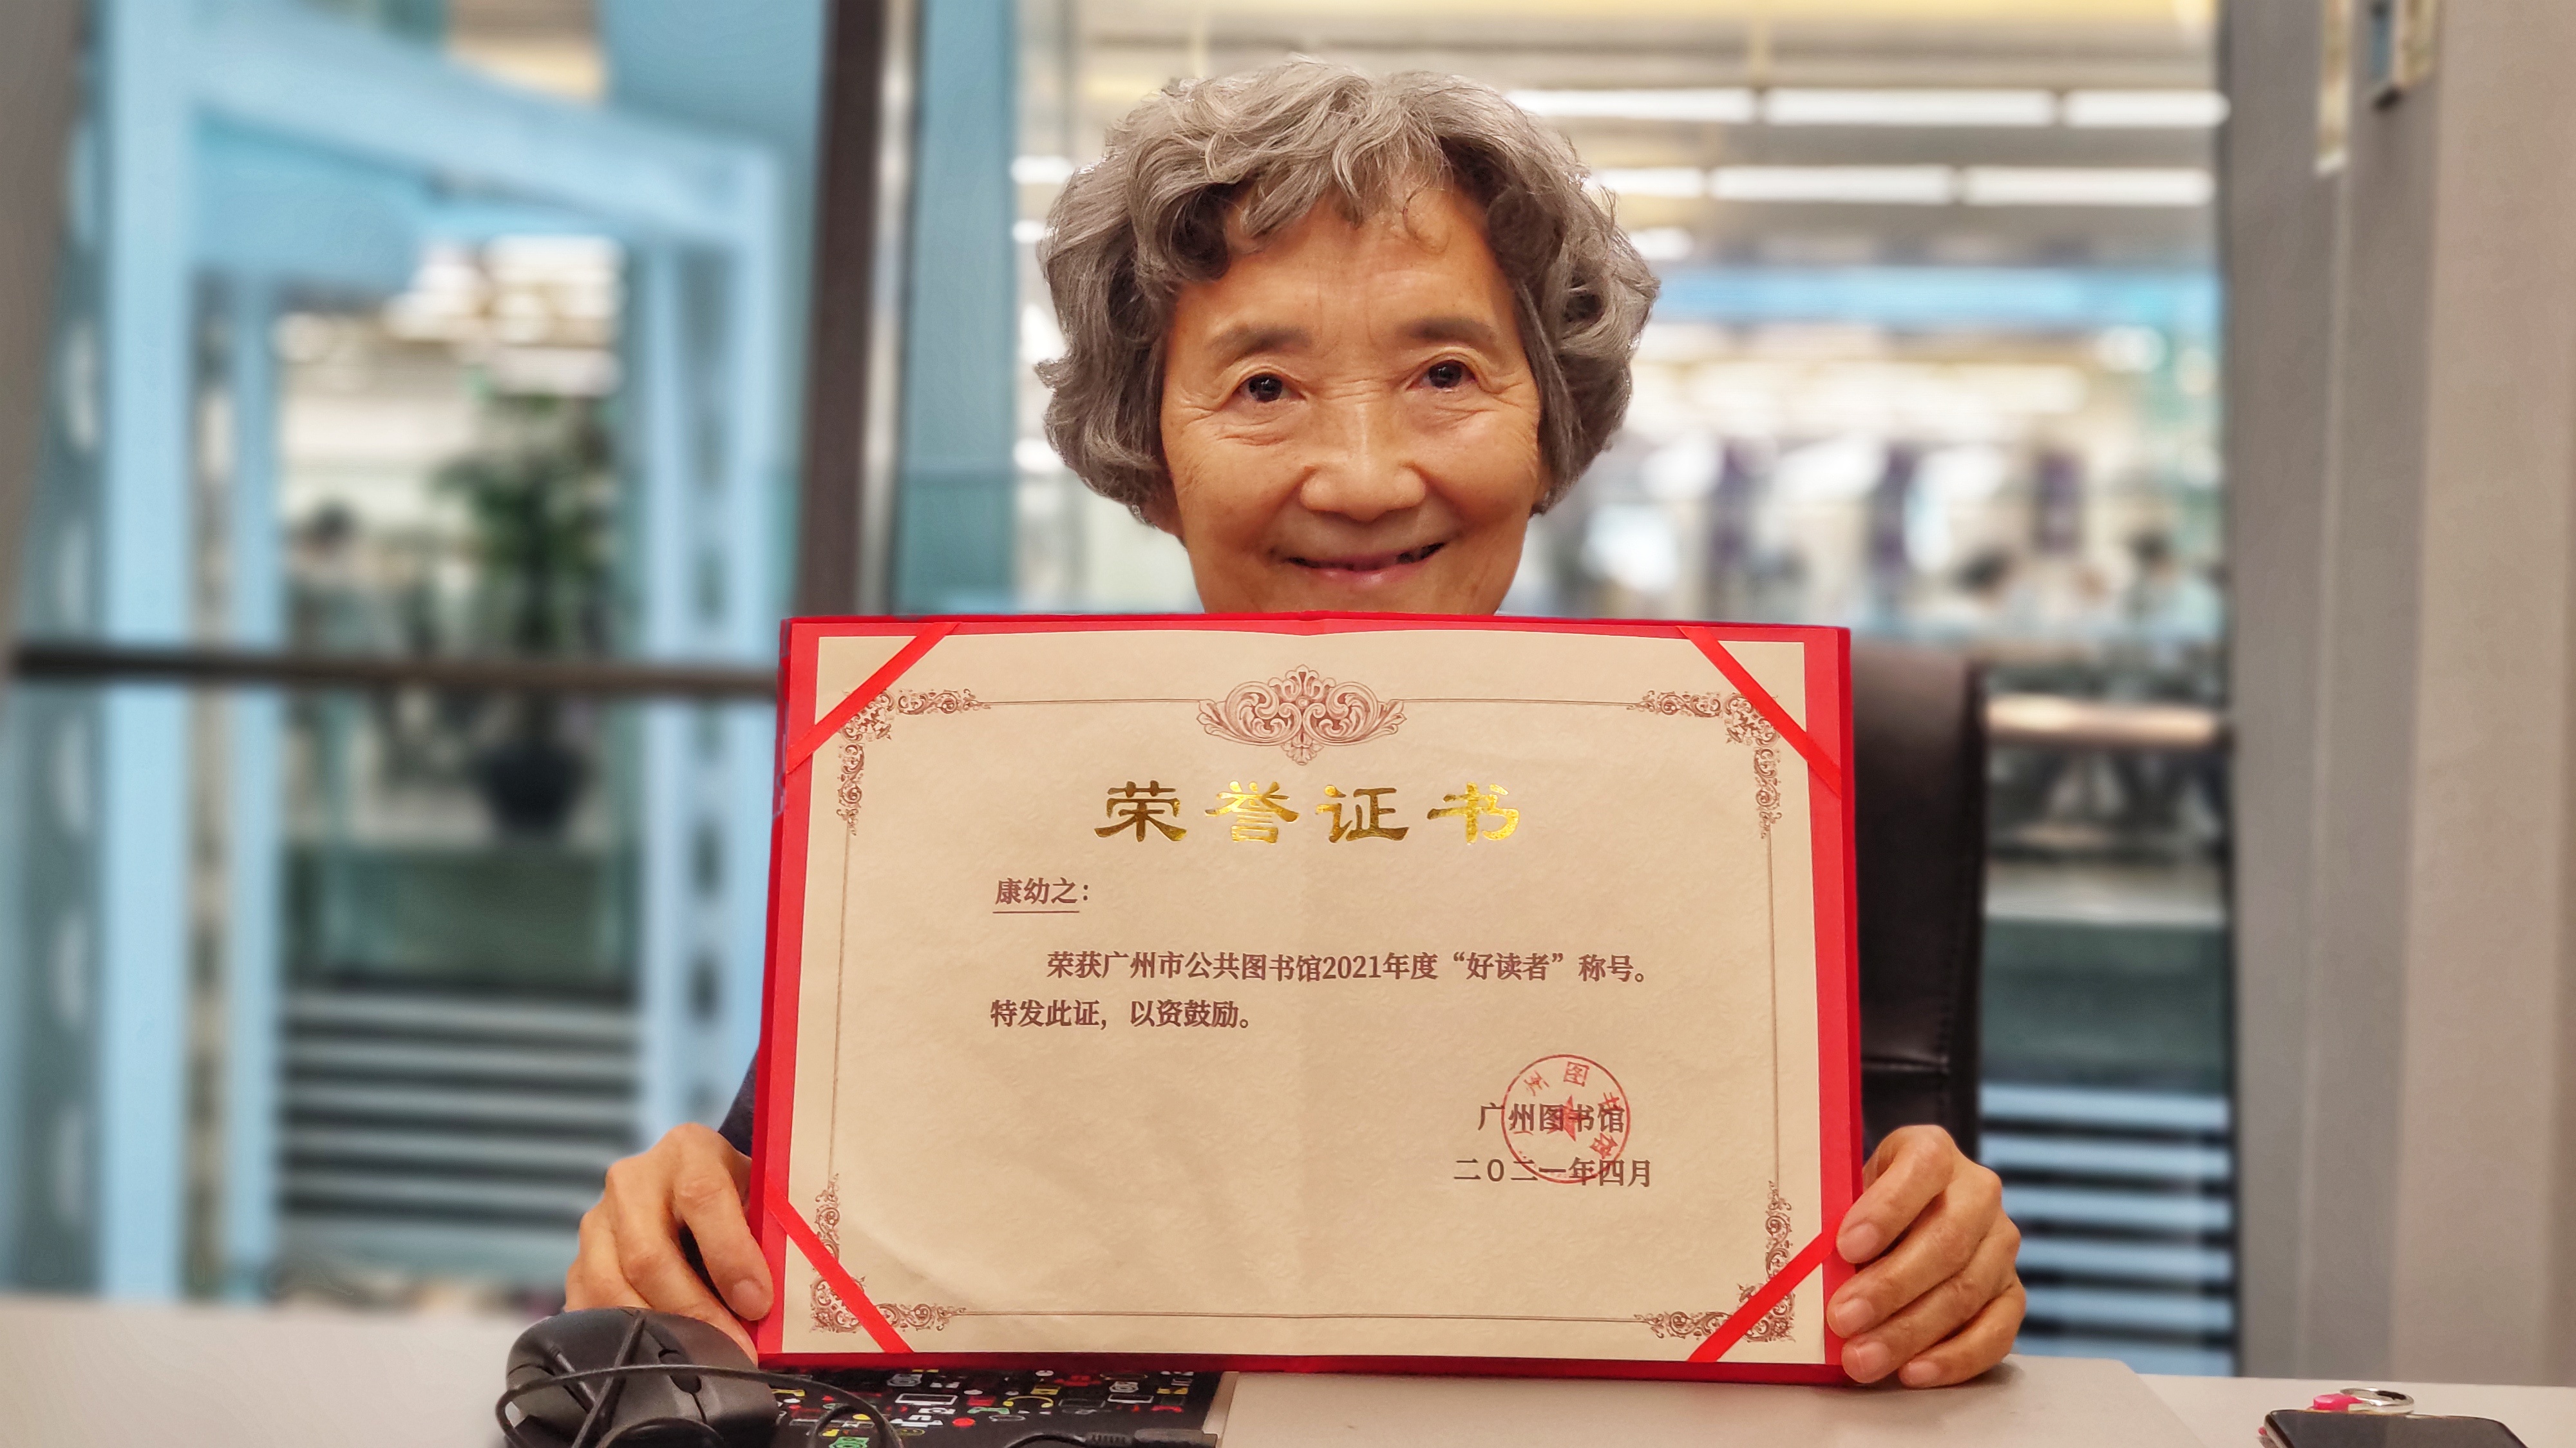 荣誉证书
康幼之：
荣获广州市公共图书馆2021年度“好读者”称号。
特发此证，以资鼓励。
广州图书馆
二〇二一年四月